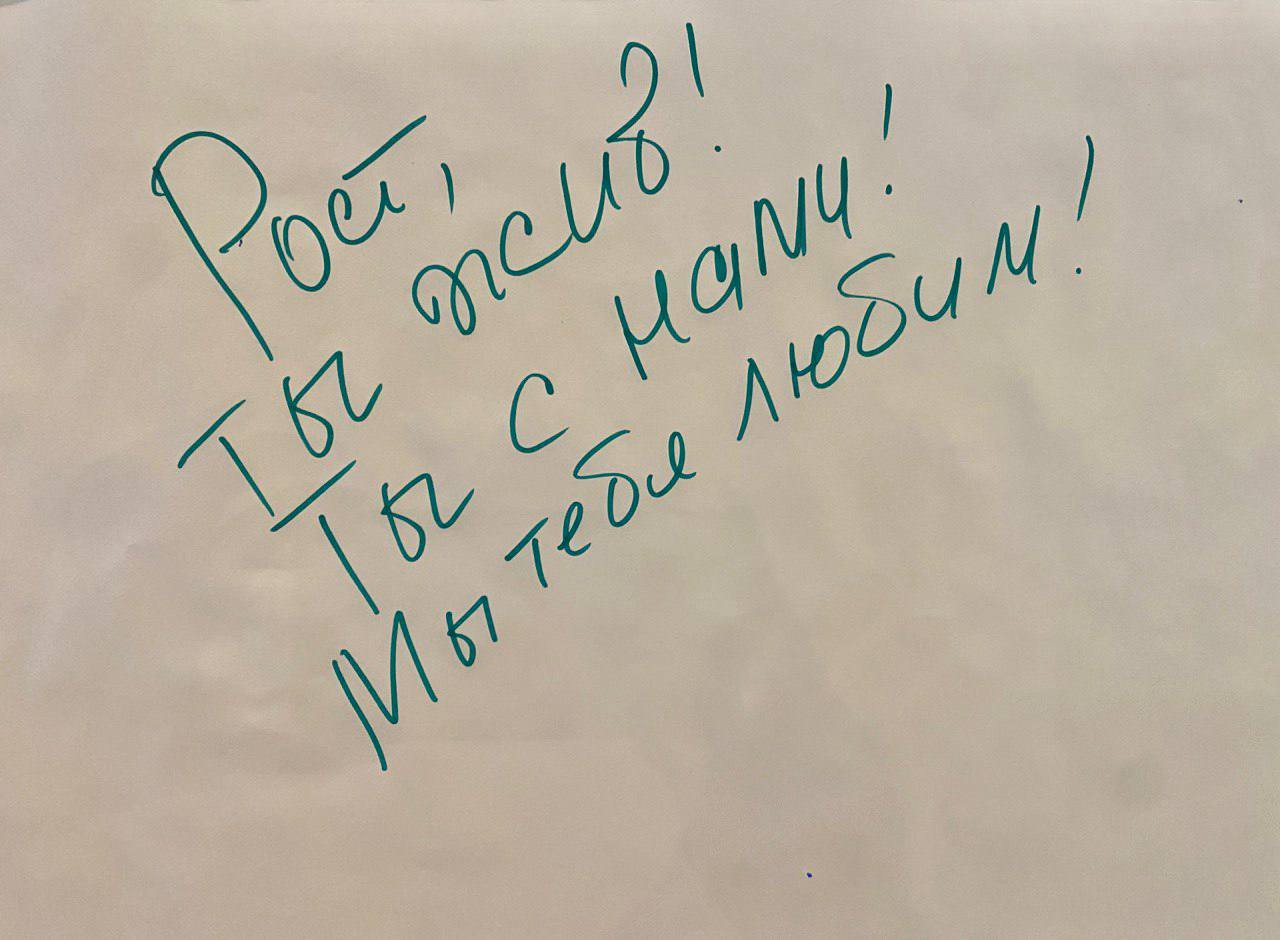 Рост,
Ты жив!
Ты с нами!
Мы тебя любим!